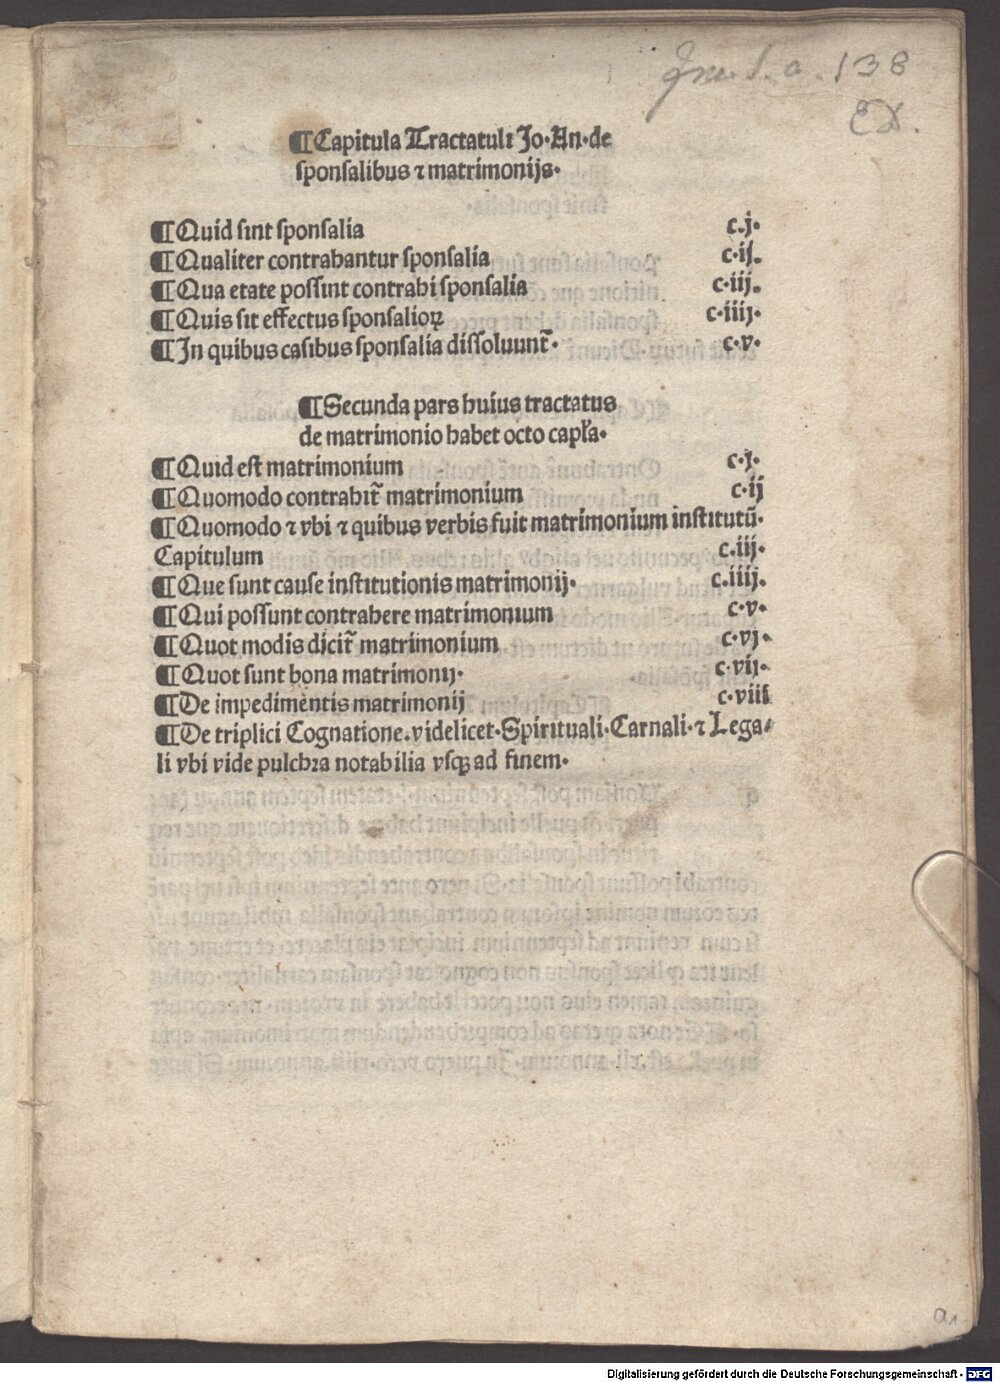 Inc. s. a. 138
Ex.
¶Capitula Tractatuli Jo·An·de
sponsalibus ⁊ matrimonijs·
¶Quid sint sponsalia c.j·
¶Qualiter contrahantur sponsalia c·ij.
¶Qua etate possint contrahi sponsalia c·iij.
¶Quis sit effectus sponsalioꝝ c·iiij·
¶In quibus casibus sponsalia dissoluunt̃· c·v·
¶Secunda pars huius tractatus
de matrimonio habet octo capl̃a·
¶Quid est matrimonium c·j·
¶Quomodo contrahit̃ matrimonium c·ij
¶Quomodo ⁊ vbi ⁊ quibus verbis fuit matrimonium institutũ·
Capitulum c.iij·
¶Que sunt cause institutionis matrimonij· c.iiij.
¶Qui possunt contrahere matrimonium c·v·
¶Quot modis dicit̃ matrimonium c·vj·
¶Quot sunt bona matrimonij· c·vij·
¶De impedimentis matrimonij c·viij
¶De triplici Cognatione.videlicet·Spirituali·Carnali·⁊ Lega⸗
li vbi vide pulchra notabilia vsqꝫ ad finem·
a1
Digitalisierung gefördert durch die Deutsche Forschungsgemeinschaft - DFG